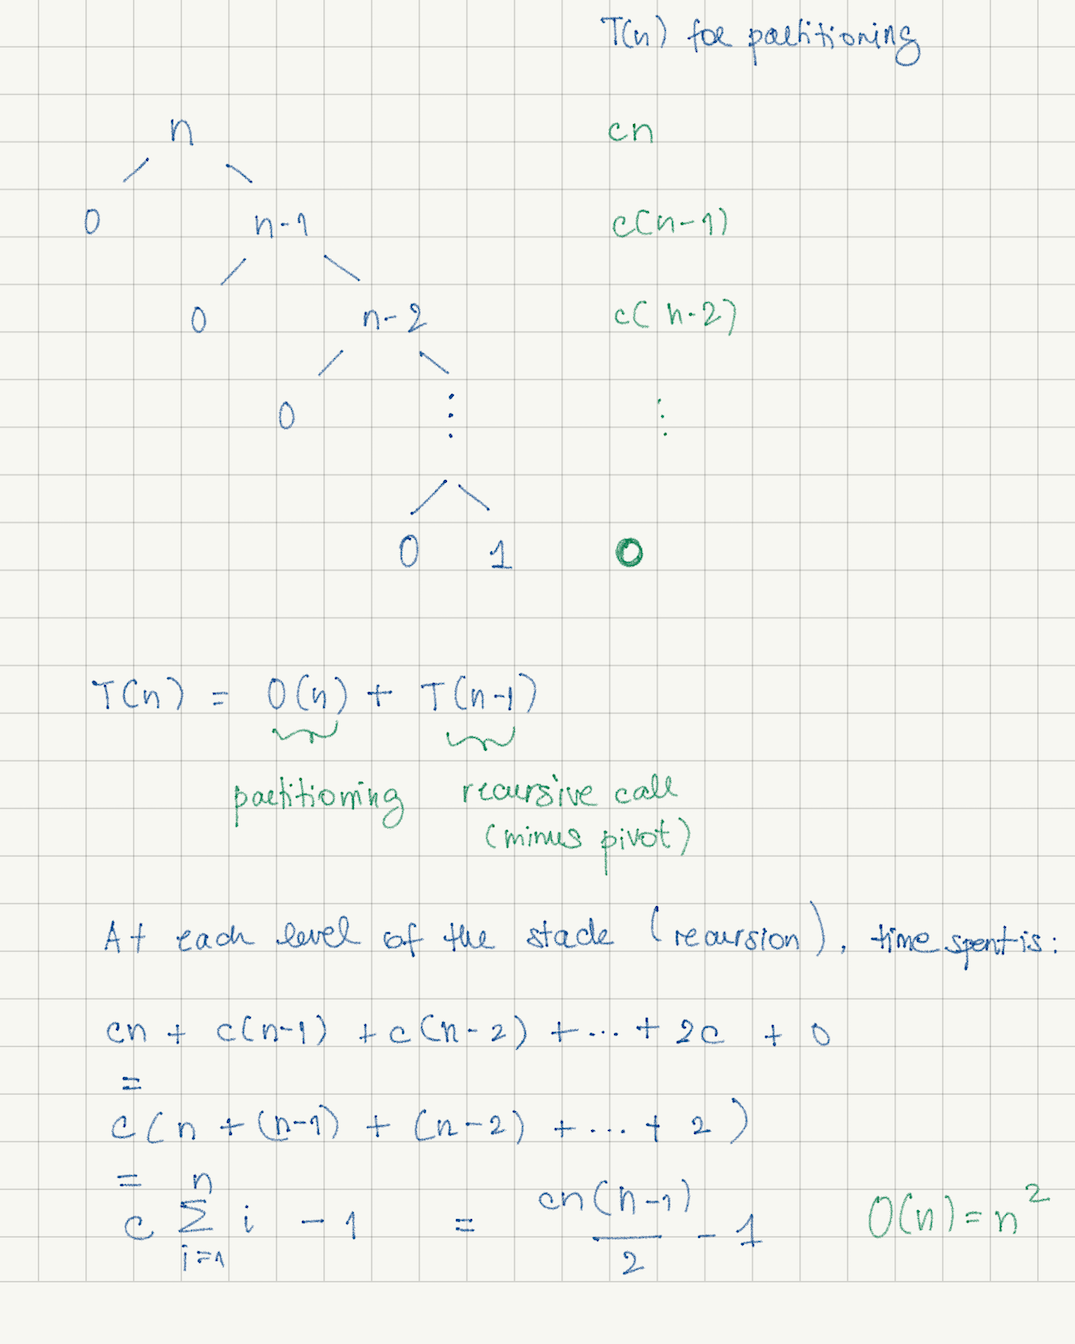 T(n) for partitioning
n
cn
0 n-1
c(n-1)
0 n-2
c(n-2)
0 ⋮
⋮
0 1
0
T(n) = O(n) + T(n-1)
partitioning recursive call
(minus pivot)
At each level of the stack (recursion), time spent is:
cn + c(n-1) + c(n-2) + ... + 2c + 0
=
c(n + (n-1) + (n-2) + ... + 2)
=
c ∑_{i=1}^{n} i - 1 = cn(n-1)/2 - 1 O(n) = n²